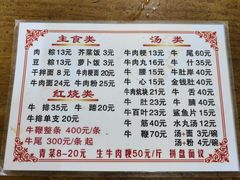 主食类
肉粽13元 芥菜饭3元
豆粽13元 萝卜饭3元
干拌面8元 牛肉粳面20元
牛肉面24元 牛肉粉25元
红烧类
牛排35元 牛筋20元
牛排单支20元
牛鞭整条400元/条
牛尾300元/条起
汤类
牛肉粳13元 牛尾60元
牛肉丸13元 牛什35元
牛腩35元 牛肚岸40元
牛筋35元 牛腰岸40元
牛舌35元 牛肝30元
牛肉炊块21元 牛心30元
牛肚21元 牛脑15元
牛百叶21元 鲨鱼片15元
牛排35元 水丸汤12元
牛鞭35元 汤+面4元
牛鞭70元 汤+粉5元
青菜8-20元 生牛肉粳50元/斤 拼盘面议